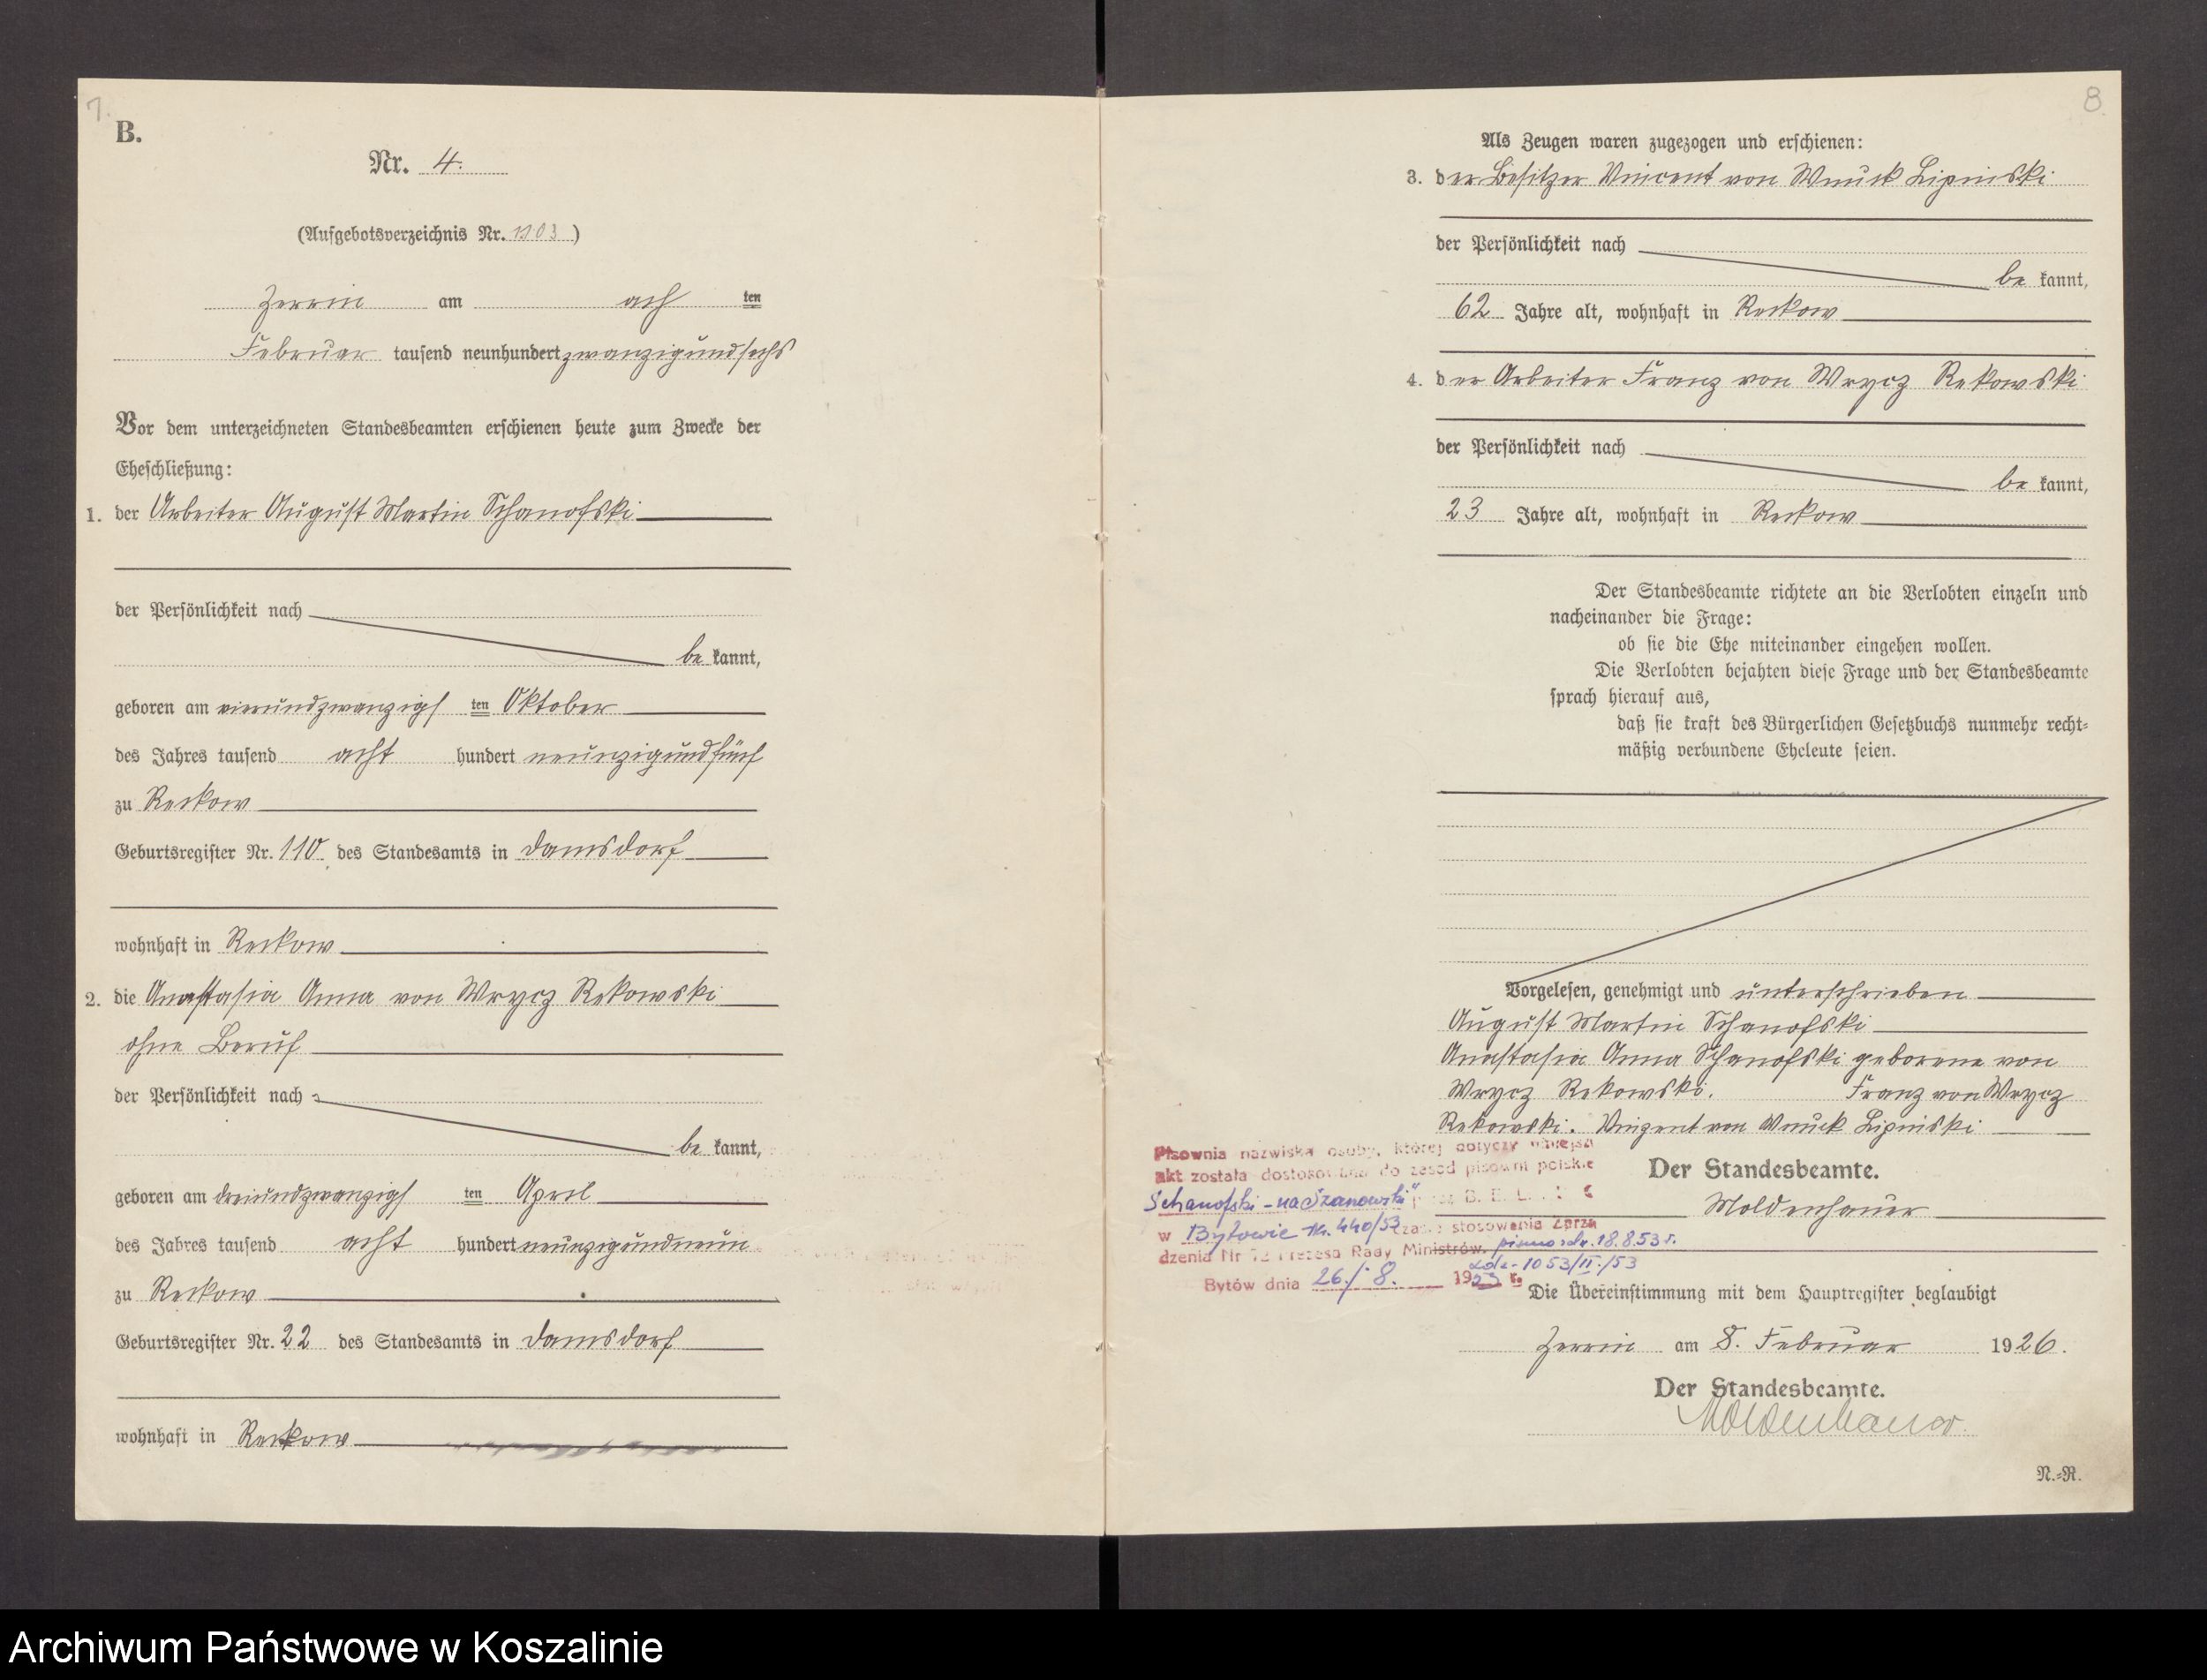 7.
B.
Nr. 4.
(Aufgebotsverzeichnis Nr. )
Zerrin am acht ten
Februar tausend neunhundert zwanzigundsechs
Vor dem unterzeichneten Standesbeamten erschienen heute zum Zwecke der
Eheschließung:
1. der Arbeiter August Martin Schanofski
der Persönlichkeit nach
be kannt,
geboren am vierundzwanzigs ten Oktober
des Jahres tausend acht hundert neunzigundfünf
zu Reckow
Geburtsregister Nr. 110 des Standesamts in Damsdorf
wohnhaft in Reckow
2. die Anastasia Anna von Wrycz Rekowski
ohne Beruf
der Persönlichkeit nach
be kannt,
geboren am dreiundzwanzigs ten April
des Jahres tausend acht hundert neunzigundneun
zu Reckow
Geburtsregister Nr. 22 des Standesamts in Damsdorf
wohnhaft in Reckow
8
Als Zeugen waren zugezogen und erschienen:
3. der Besitzer Vincent von Wnuck Lipinski
der Persönlichkeit nach
be kannt,
62 Jahre alt, wohnhaft in Reckow
4. der Arbeiter Franz von Wrycz Rekowski
der Persönlichkeit nach
be kannt,
23 Jahre alt, wohnhaft in Reckow
Der Standesbeamte richtete an die Verlobten einzeln und
nacheinander die Frage:
ob sie die Ehe miteinander eingehen wollen.
Die Verlobten bejahten diese Frage und der Standesbeamte
sprach hierauf aus,
daß sie kraft des Bürgerlichen Gesetzbuchs nunmehr recht-
mäßig verbundene Eheleute seien.
Vorgelesen, genehmigt und unterschrieben
August Martin Schanofski
Anastasia Anna Schanofski geborene von
Wrycz Rekowski. Franz von Wrycz
Rekowski. Vinzent von Wnuck Lipinski
Pisownia nazwiska osoby, której dotyczy niniejszy
akt została dostosowana do zasad pisowni polskiej
"Schanofski - na Szanowski"
w Bytowie Nr. 440/53 stosowania Zarzą
dzenia Nr Prezesa Rady Ministrów. pismo z dn. 18.8.53 r.
1053/II/53
Bytów dnia 26./8. 1953 r.
Der Standesbeamte.
Moldenhauer
Die Übereinstimmung mit dem Hauptregister beglaubigt
Zerrin am 8. Februar 1926.
Der Standesbeamte.
Moldenhauer.
N.-R.
Archiwum Państwowe w Koszalinie